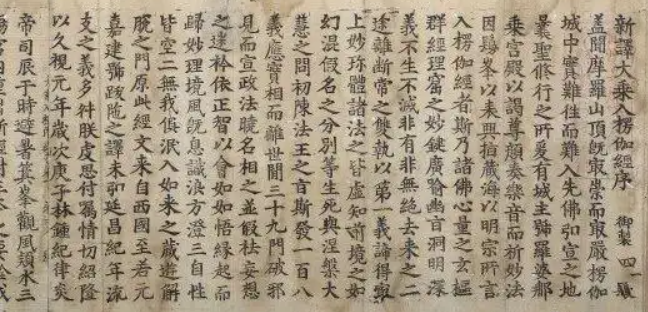 新譯大乘入楞伽經序 御製 四一
蓋聞摩羅山頂既最崇而最嚴楞伽
城中實難往而難入先佛弘宣之地
曩聖修行之所爰有城主號羅婆那
乘宮殿以謁尊顏奏樂音而祈妙法
因峯以表興指藏海以明宗所言
入楞伽經者斯乃諸佛心量之玄樞
群經理窟之妙鍵廣喻幽旨洞明深
義不生不滅非有非無絕去來之二
途離斷常之雙執以第一義諦得最
上妙珍體諸法之皆虛知前境之如
幻混假名之分別等生死與涅槃大
慧之問初陳法王之旨斯發一百八
義應實相而離世間三十九門破邪
見而宣政法曉名相之並假祛妄想
之迷衿依正智以會如如悟緣起而
歸妙理境風既息識浪方澄三自性
皆空二無我俱泯入如來之藏遊解
脫之門原此經文來自西國至若元
嘉建號跋陀之譯未弘延昌紀年流
支之義多舛朕虔思付囑情切紹隆
以久視元年歲次庚子林鍾紀律炎
帝司辰于時避暑箕峯觀風潁水三